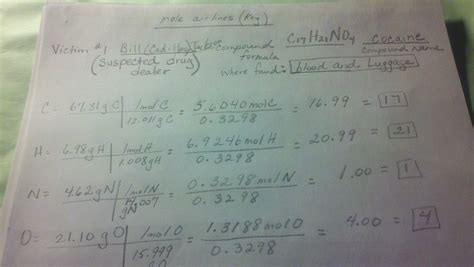 mole airlines (Key)
Victim #1 Bill (Cadillac) Jackson compound formula C17H21NO4 cocaine compound name
(suspected drug dealer) where found: blood and Luggage
C = 67.31g C | 1mol C / 12.011g C = 5.6040 mol C / 0.3298 = 16.99 = 17
H = 6.98gH | 1molH / 1.008gH = 6.9246 mol H / 0.3298 = 20.99 = 21
N = 4.62gN | 1mol N / 14.007 gN = 0.3298 mol N / 0.3298 = 1.00 = 1
O = 21.10 gO | 1mol O / 15.999 gO = 1.3188 mol O / 0.3298 = 4.00 = 4